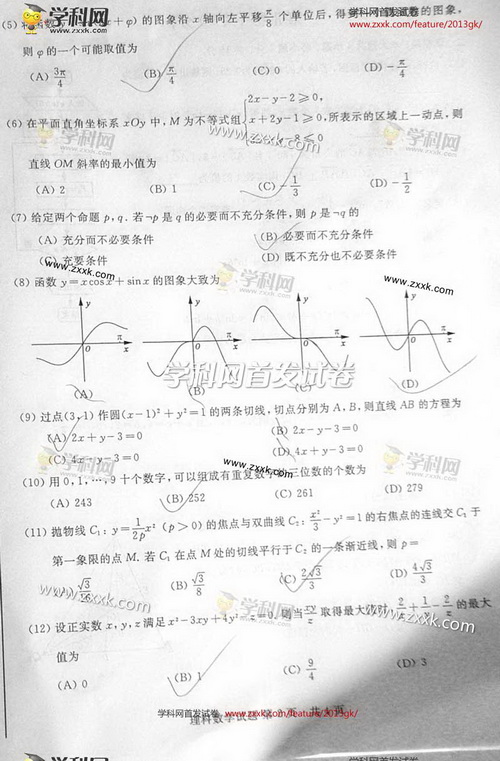 学科网
www.zxxk.com
学科网首发试卷
www.zxxk.com/feature/2013gk/
(5) 将函数 +φ) 的图象沿 x 轴向左平移 π/8 个单位后, 得到 的图象,
则 φ 的一个可能取值为
(A) 3π/4 (B) π/4 (C) 0 (D) -π/4
(6) 在平面直角坐标系 xOy 中, M 为不等式组 { 2x-y-2≥0, x+2y-1≥0, -8≤0 所表示的区域上一动点, 则
直线 OM 斜率的最小值为
(A) 2 (B) 1 (C) -1/3 (D) -1/2
(7) 给定两个命题 p, q. 若 ¬p 是 q 的必要而不充分条件, 则 p 是 ¬q 的
(A) 充分而不必要条件 (B) 必要而不充分条件
(C) 充要条件 (D) 既不充分也不必要条件
(8) 函数 y=xcosx+sinx 的图象大致为
y y y y
π π π π
O x O x O x O x
(A) (B) (C) (D)
学科网首发试卷
(9) 过点(3,1) 作圆(x-1)²+y²=1 的两条切线, 切点分别为 A, B, 则直线 AB 的方程为
(A) 2x+y-3=0 (B) 2x-y-3=0
(C) 4x-y-3=0 (D) 4x+y-3=0
(10) 用 0, 1, …, 9 十个数字, 可以组成有重复数字的三位数的个数为
(A) 243 (B) 252 (C) 261 (D) 279
(11) 抛物线 C₁: y=1/2p x² (p>0) 的焦点与双曲线 C₂: x²/3-y²=1 的右焦点的连线交 C₁ 于
第一象限的点 M. 若 C₁ 在点 M 处的切线平行于 C₂ 的一条渐近线, 则 p=
√3/16 (B) √3/8 (C) 2√3/3 (D) 4√3/3
(12) 设正实数 x, y, z 满足 x²-3xy+4y²-z=0. 则当 xy/z 取得最大值时, 2/x+1/y-2/z 的最大
值为
(A) 0 (B) 1 (C) 9/4 (D) 3
理科数学试题 第 2 页 共 4 页
学科网首发试卷 www.zxxk.com/feature/2013gk/
学科网 学科网首发试卷